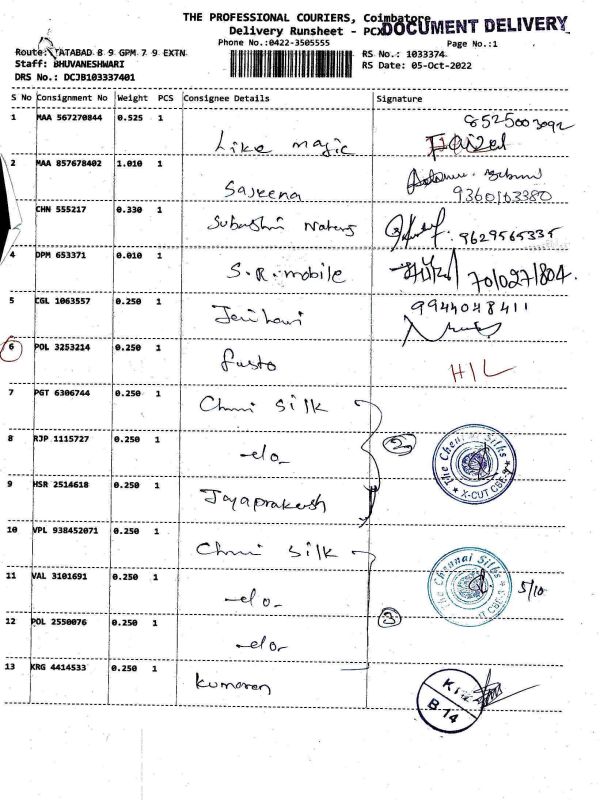 THE PROFESSIONAL COURIERS, Coimbatore
Delivery Runsheet - PCX
DOCUMENT DELIVERY
Phone No.:0422-3505555
Page No.:1
Route: TATABAD 8 9 GPM 7 9 EXTN
RS No.: 1033374
Staff: BHUVANESHWARI
RS Date: 05-Oct-2022
DRS No.: DCJB103337401
S No Consignment No Weight PCS Consignee Details Signature
1 MAA 567270844 0.525 1 Like magic 8525003092
2 MAA 857678402 1.010 1 Sajeena 9360163380
CHN 555217 0.330 1 9629565335
4 DPM 653371 0.010 1 S.R. mobile
5 CGL 1063557 0.250 1 9944048411
6 POL 3253214 0.250 1 H/L
7 PGT 6306744 0.250 1 Silk
8 RJP 1115727 0.250 1 -do- 2 The Chennai Silks X-CUT CBE-9
9 HSR 2514618 0.250 1 Jayaprakash
10 VPL 938452071 0.250 1 Silk
11 VAL 3101691 0.250 1 -do- The Chennai Silks 5/10
12 POL 2550076 0.250 1 -do- 3
13 KRG 4414533 0.250 1 Kumaran B 14